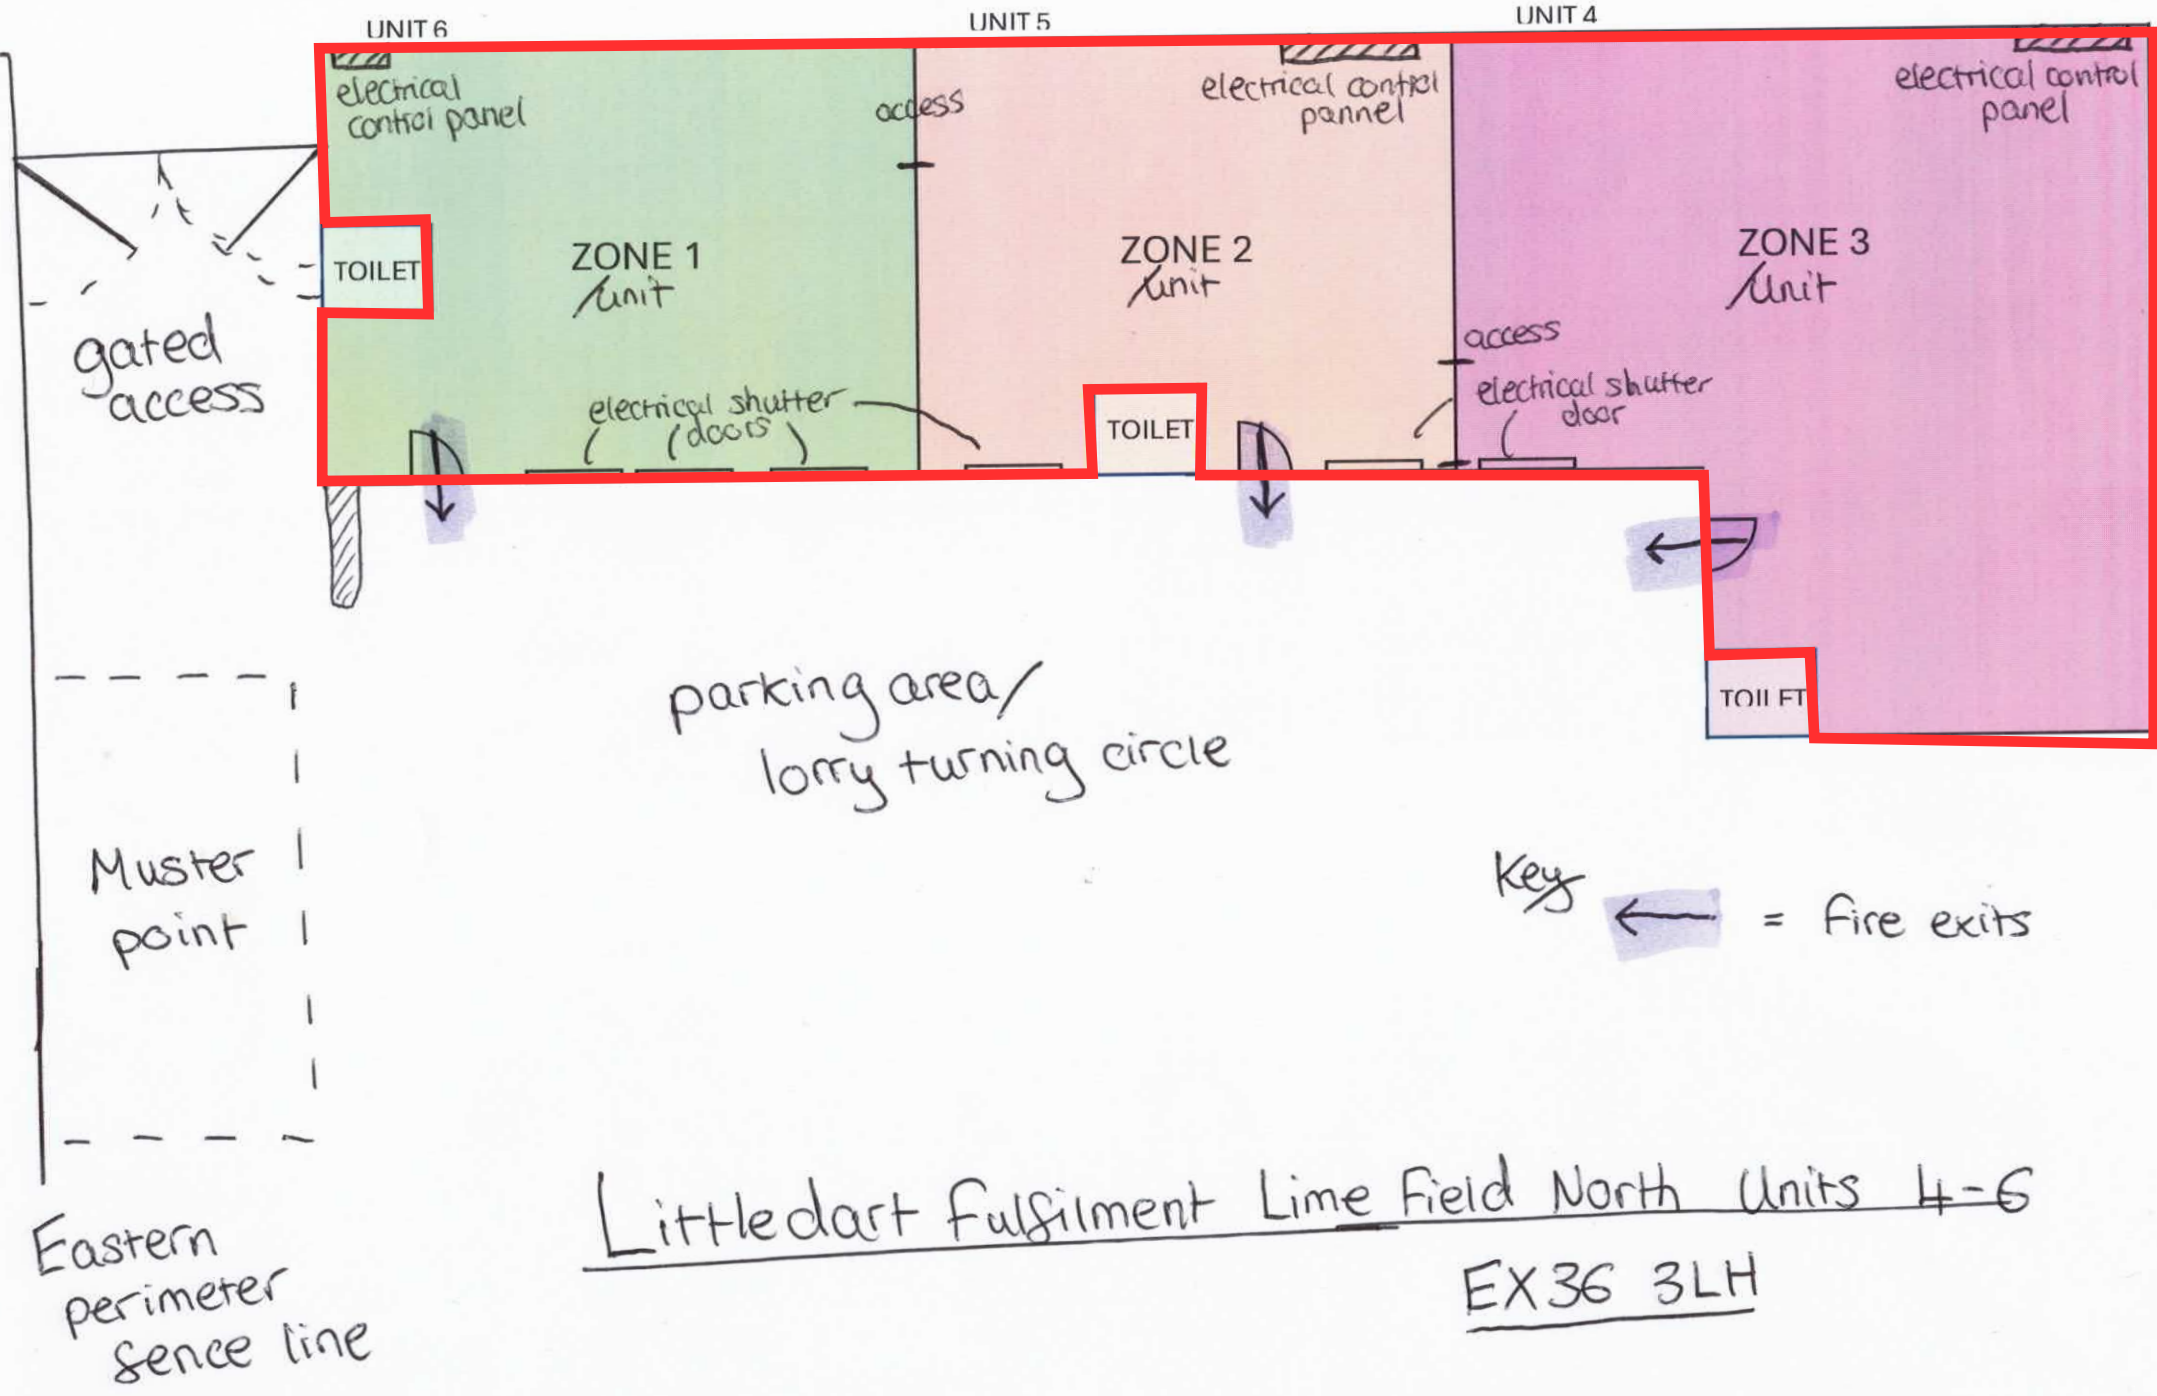 UNIT 6
UNIT 5
UNIT 4
electrical
control panel
access
electrical control
pannel
electrical control
panel
TOILET
ZONE 1
/unit
ZONE 2
/unit
ZONE 3
/Unit
gated
access
access
electrical shutter
doors
electrical shutter
door
TOILET
TOILET
parking area/
lorry turning circle
Muster
point
Key
= fire exits
Littledart Fulfilment Lime Field North Units 4-6
EX36 3LH
Eastern
perimeter
fence line